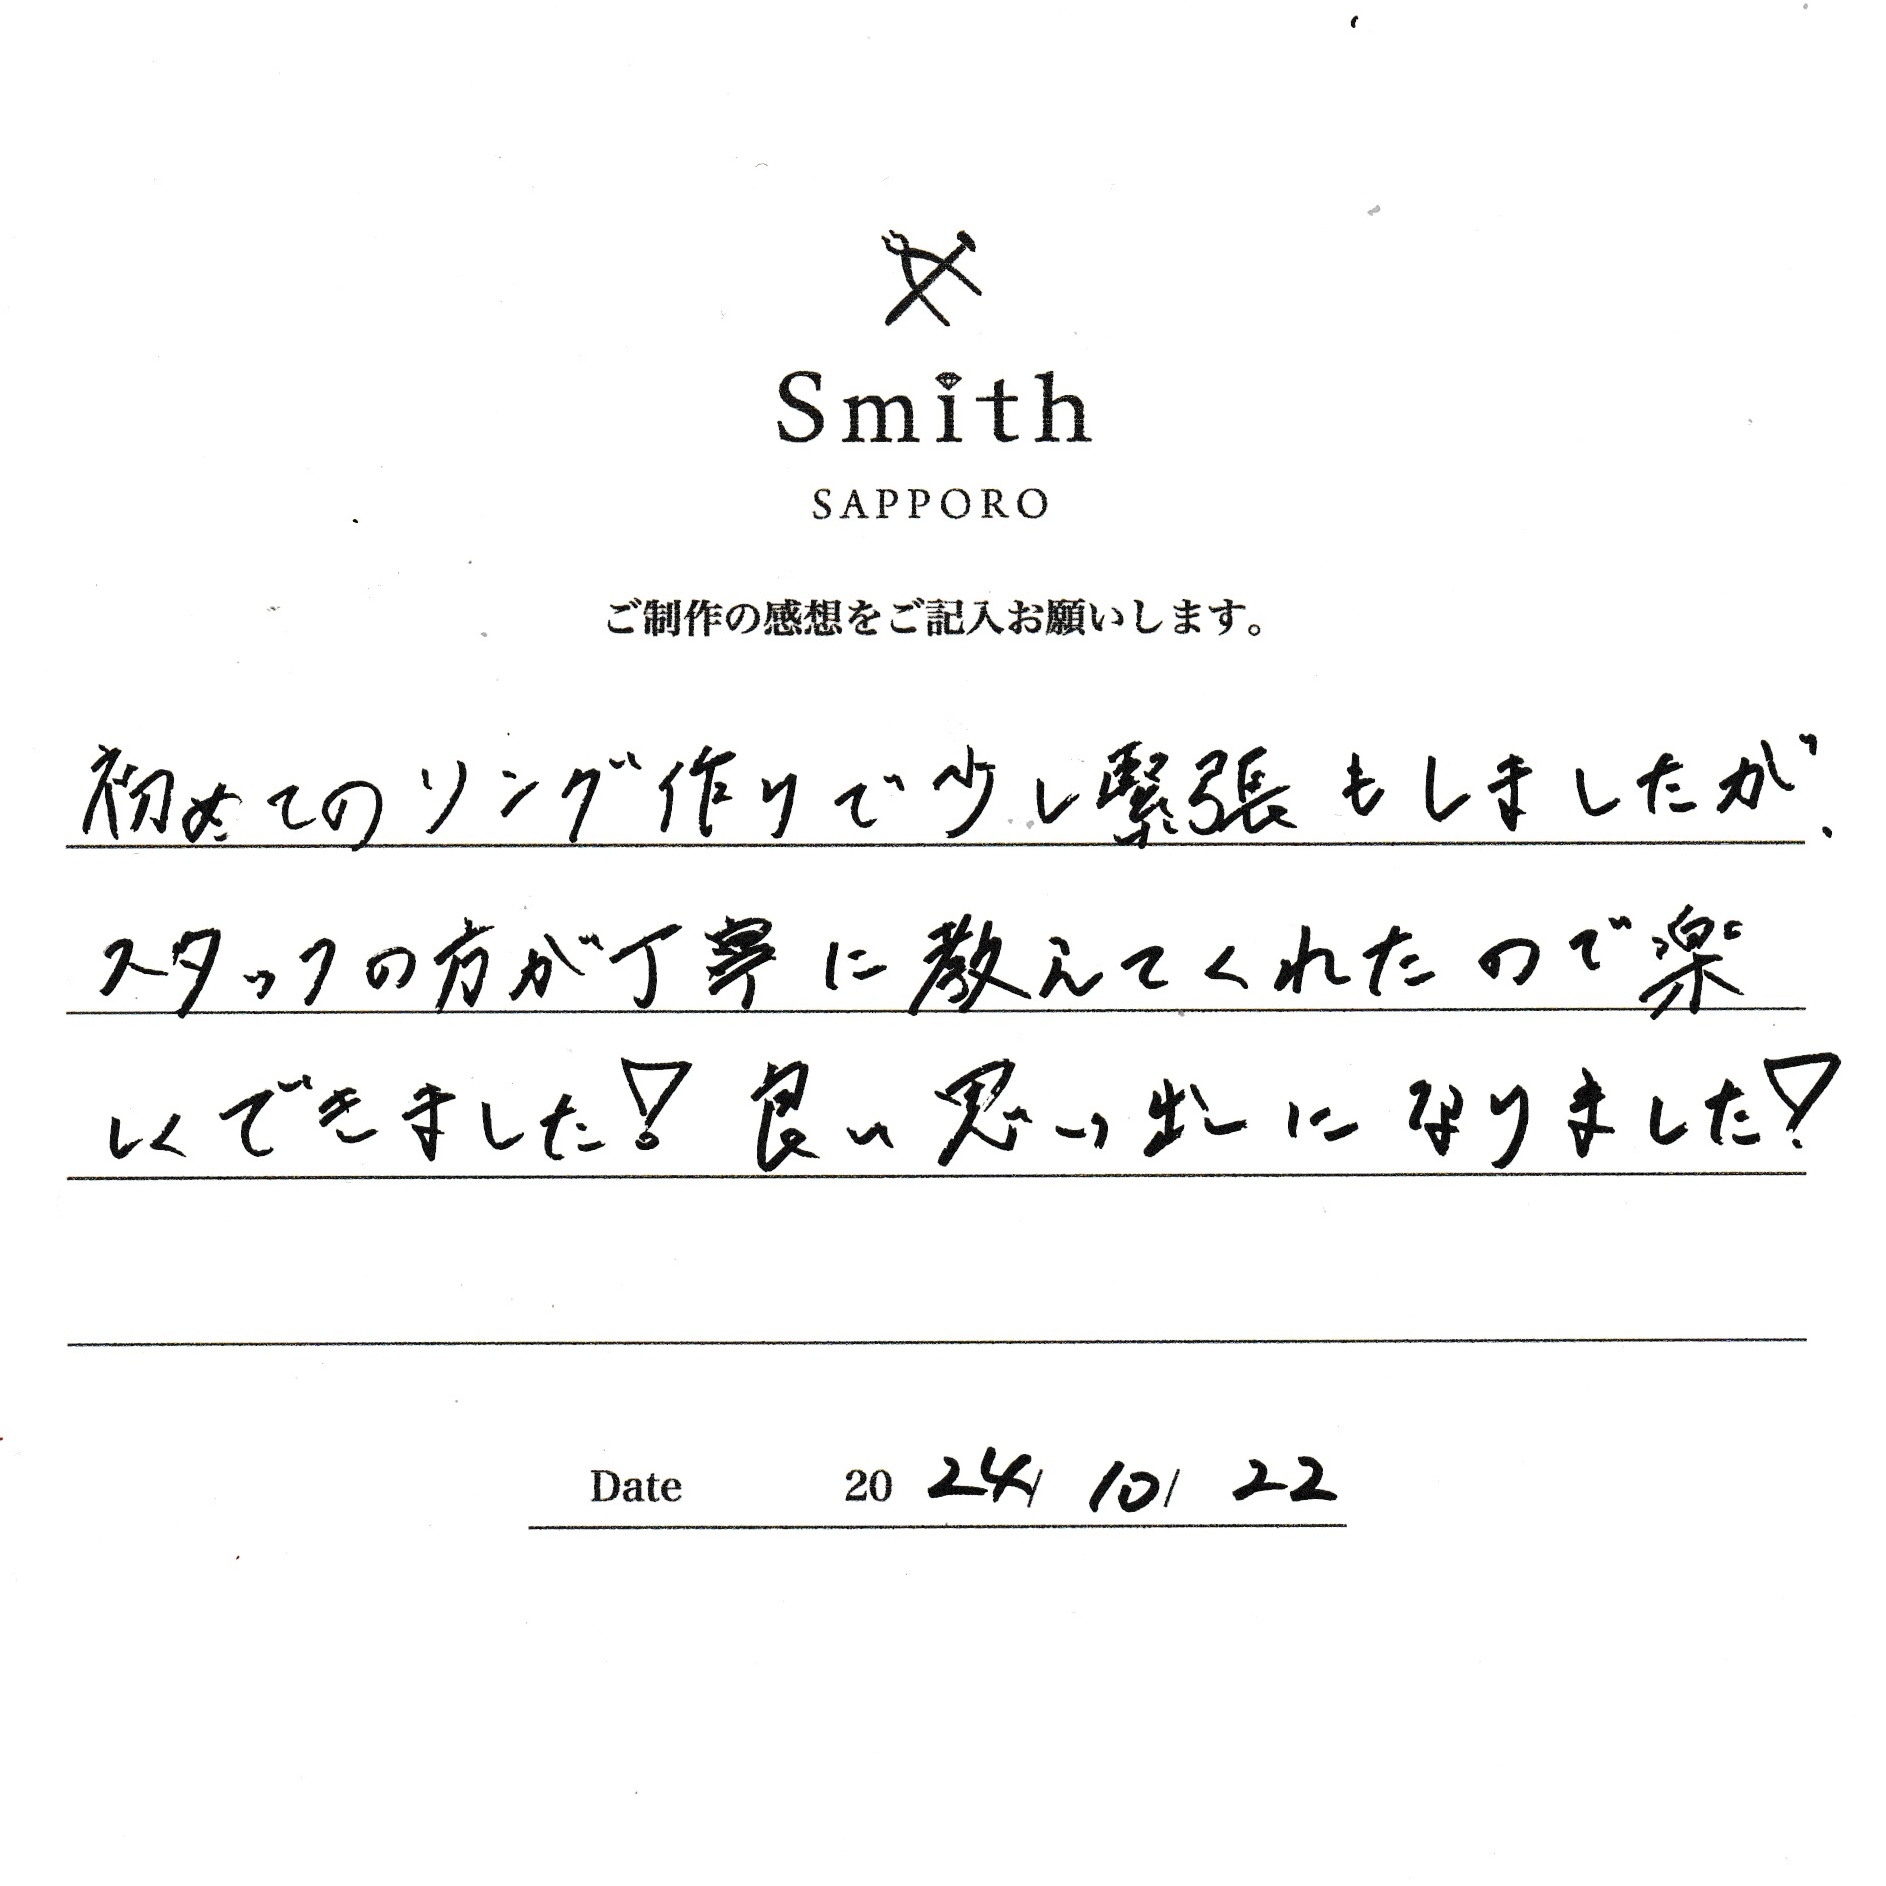 Smith
SAPPORO
ご制作の感想をご記入お願いします。
初めてのリング作りで少し緊張もしましたが、
スタッフの方が丁寧に教えてくれたので楽
しくできました！良い思い出になりました！
Date 20 24/ 10/ 22